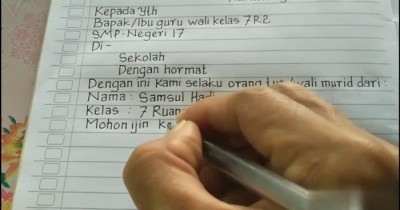 Kepada Yth
Bapak/Ibu guru wali kelas 7R2
SMP Negeri 17
Di -
Sekolah
Dengan hormat
Dengan ini kami selaku orang tua/wali murid dari :
Nama : Samsul Hadi
Kelas : 7 Ruan
Mohon ijin ke